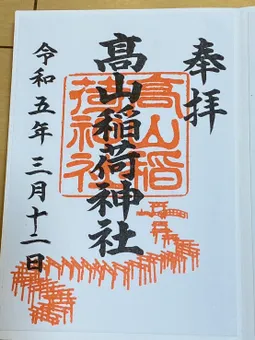 奉拝
髙山稲荷神社
高山稲荷神社
令和五年三月十二日